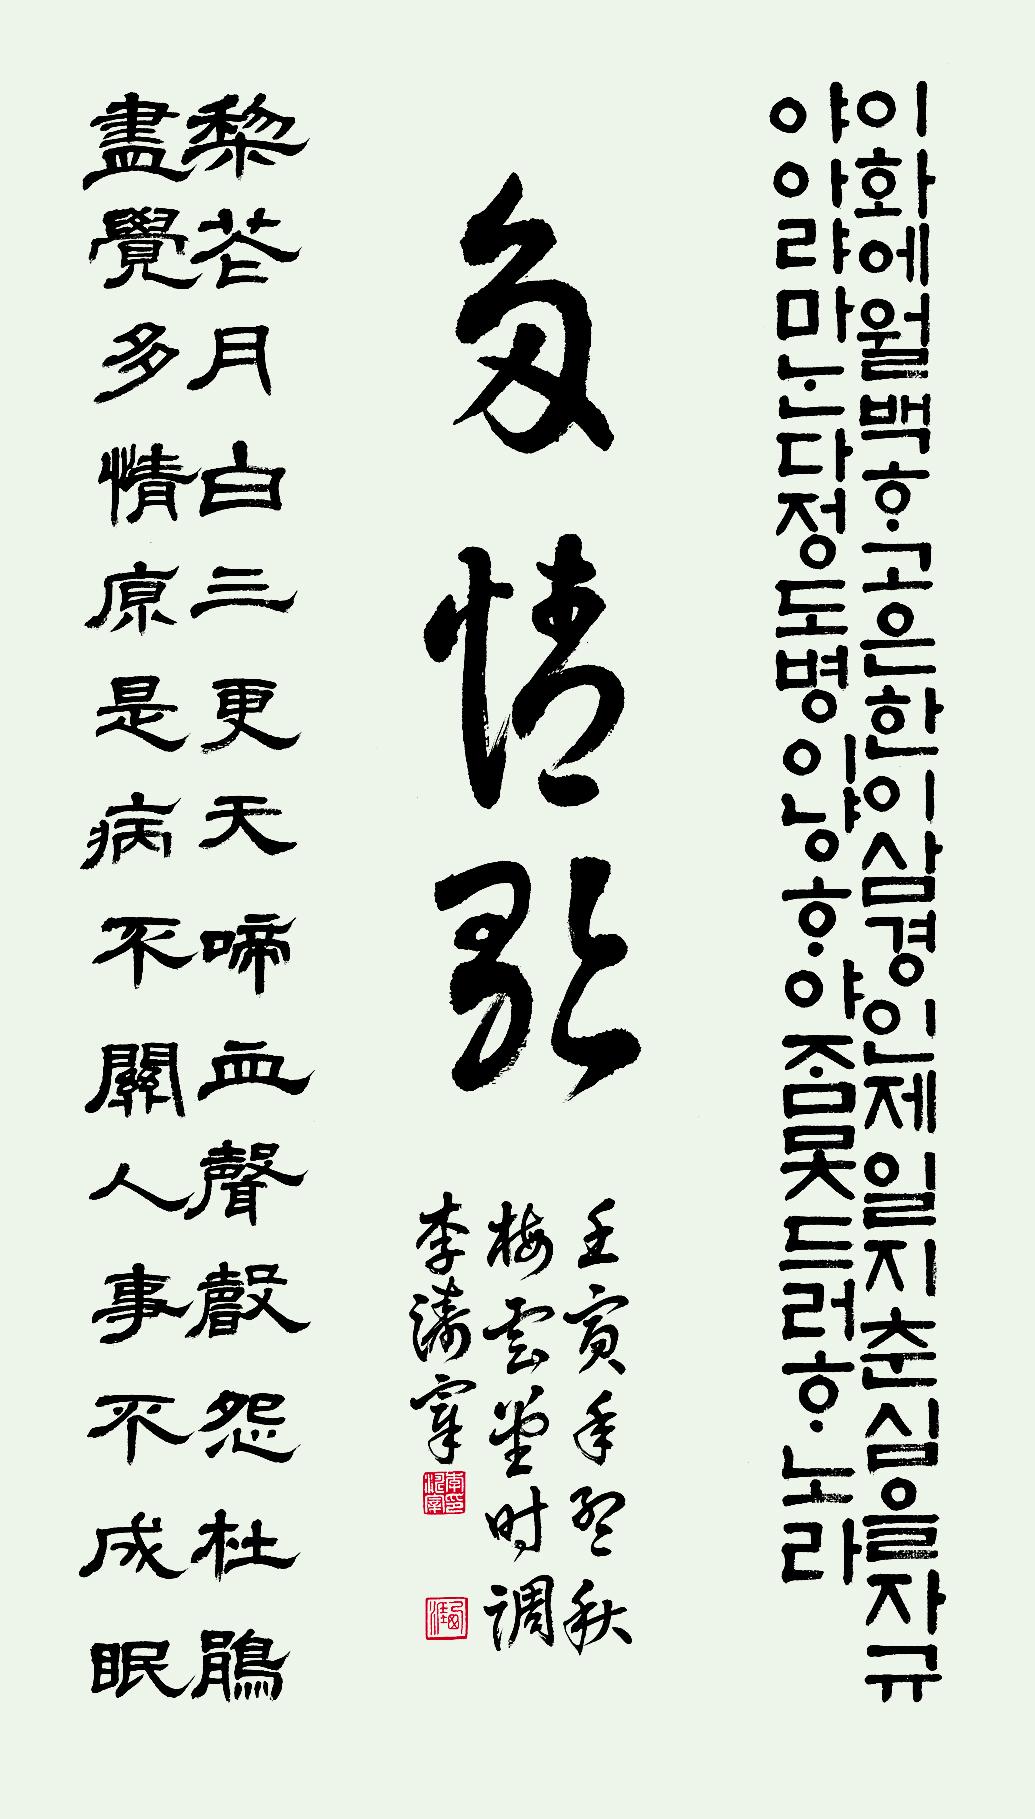 이화에월백ᄒᆞ고은한이삼경인제일지춘심을자규
야아랴마ᄂᆞᆫ다정도병이냥ᄒᆞ야ᄌᆞᆷ못드러ᄒᆞ노라
多情歌
壬寅年孟秋
梅雲堂时调
李
棃花月白三更天啼血聲聲怨杜鵑
盡覺多情原是病不關人事不成眠